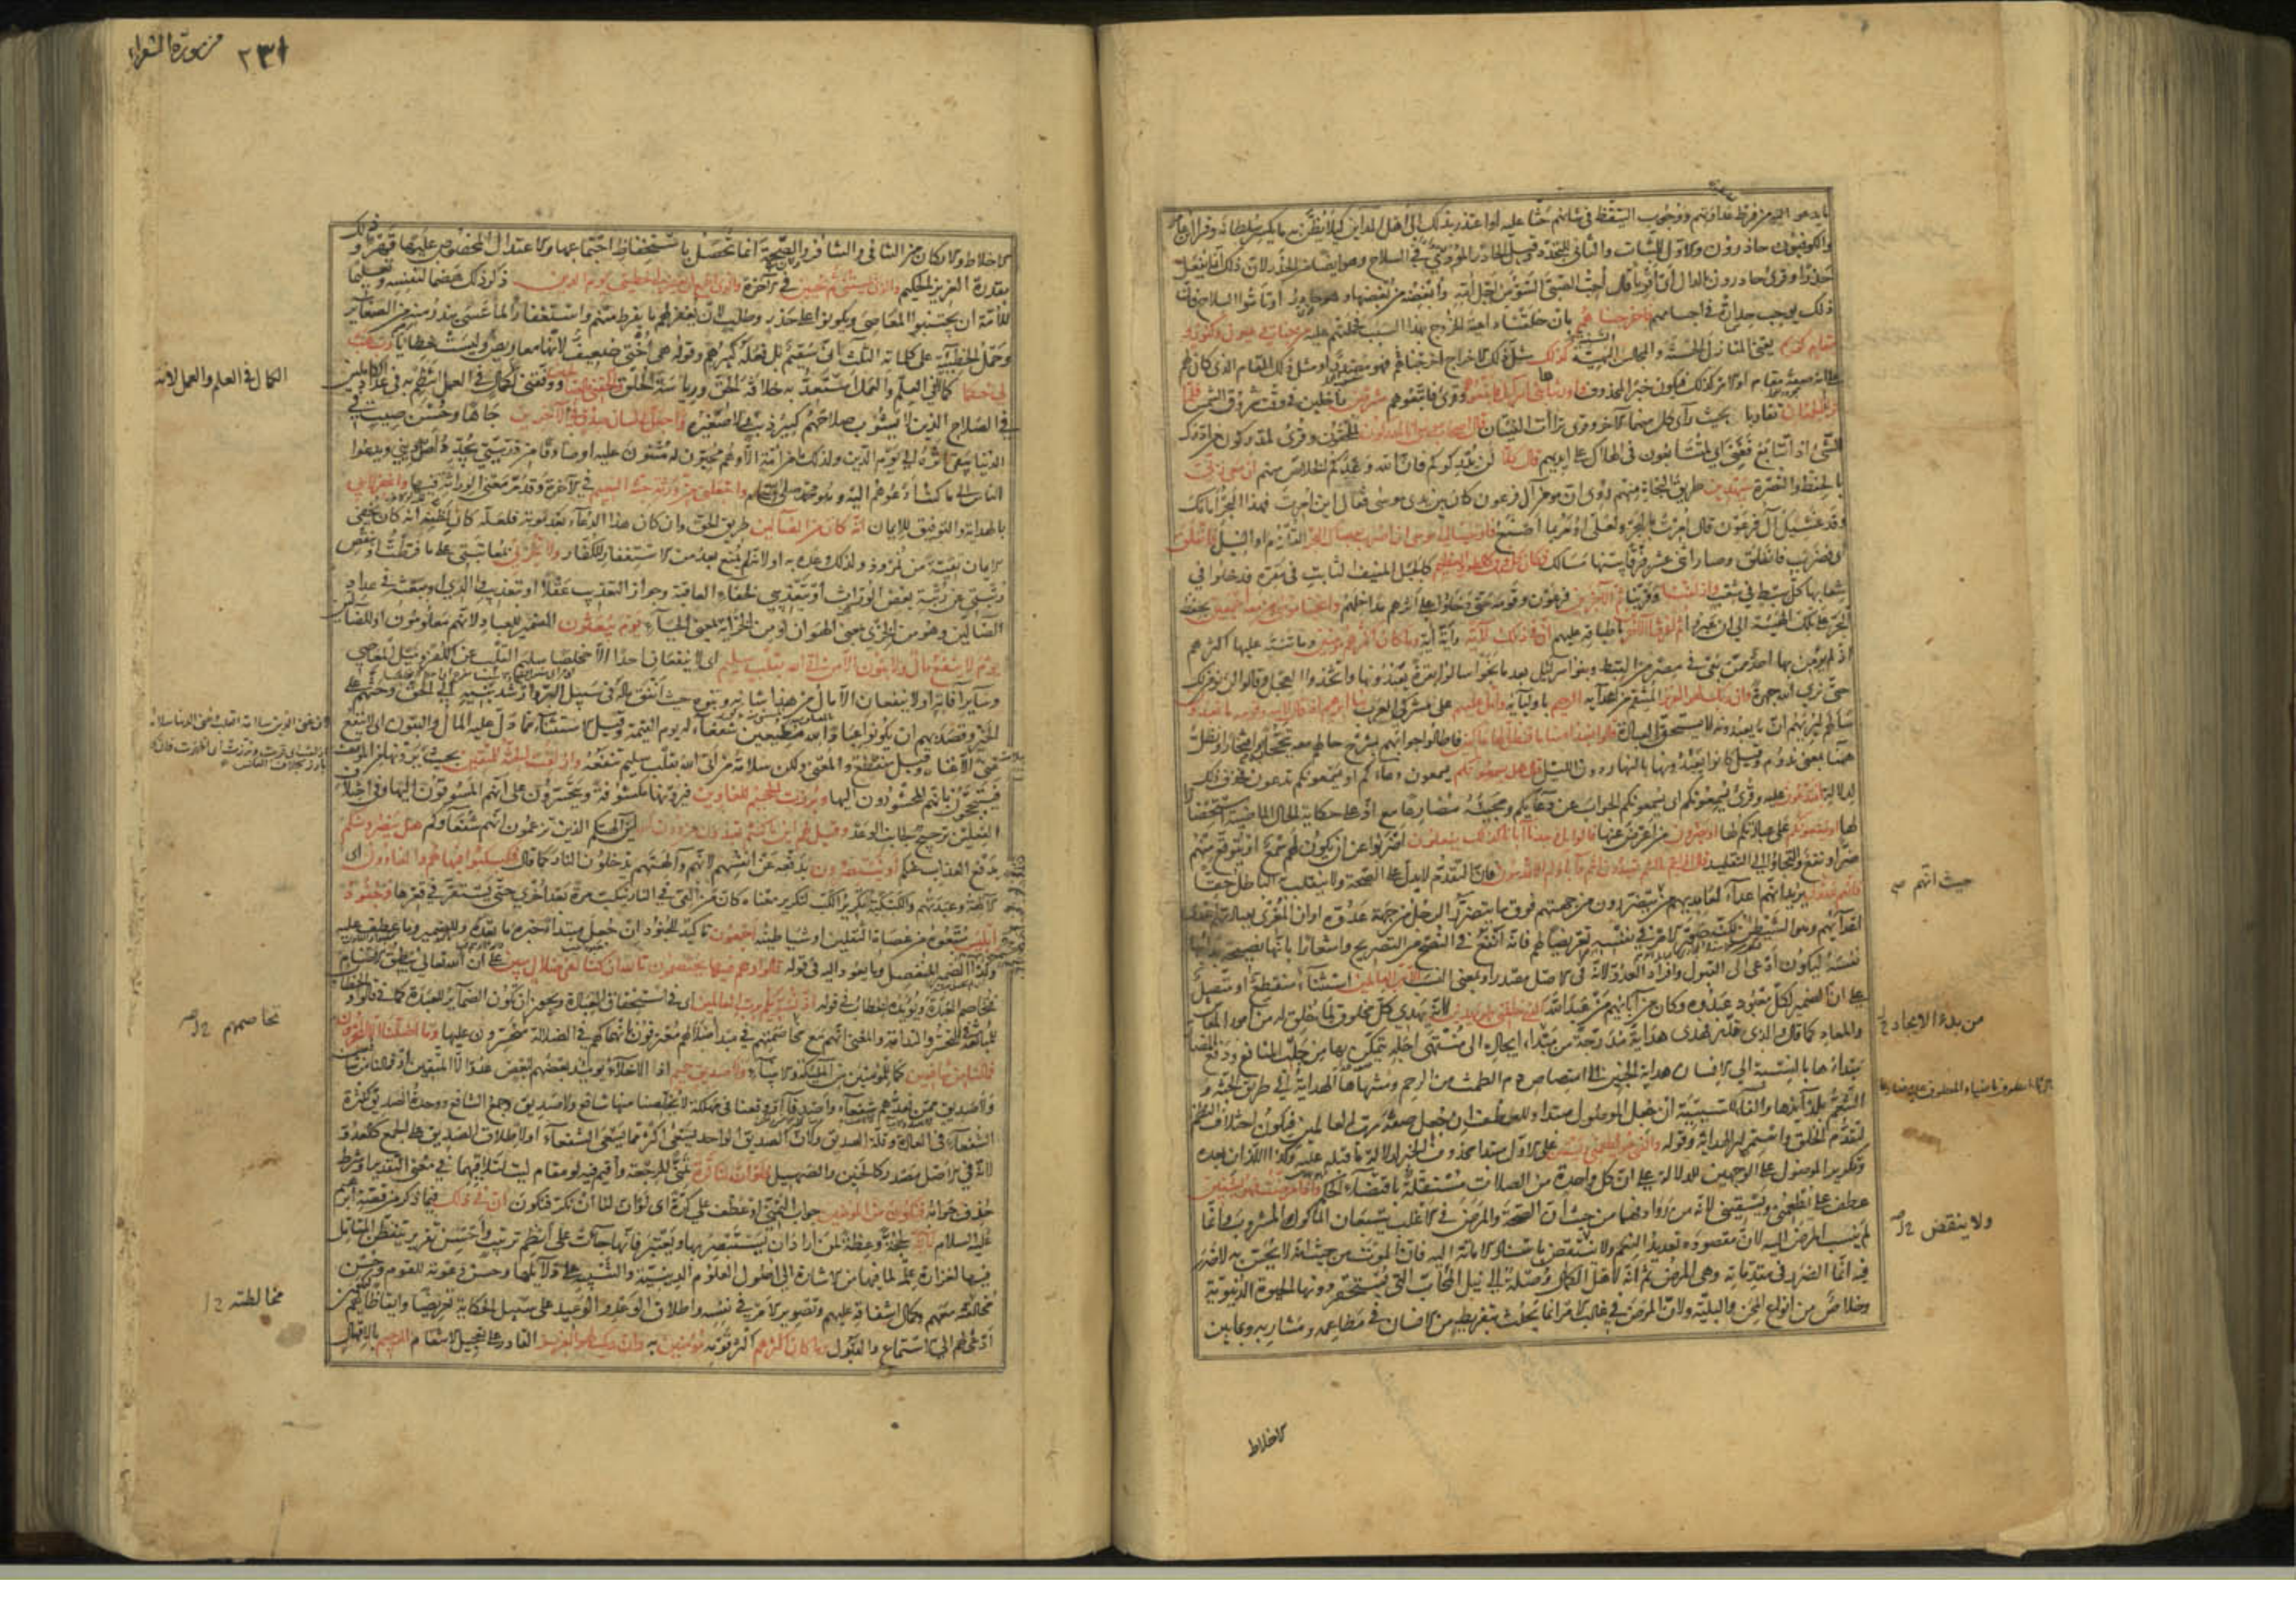 ما يدعو اليه من فرط عداوتهم ووجوب التيقظ في شانهم حثا عليه او اعتذر بذلك الى اهل المداين كيلا يظن به ما يكسر سلطانه وقرأ ابن عامر
والكوفيون حاذرون والاول للثبات والثاني للتجدد وقيل الحاذر المؤدي في السلاح وهو ايضا من الحذر لان ذلك انما يفعل
حذرا وقرئ حادرون بالدال اي اقوياء قال احب الصبي السوء من اجل امه وابغضه من بغضها وهو حادر او تامّوا السلاح فان
ذلك يوجب حدارة في اجسامهم فاخرجناهم بان خلقنا داعية الخروج بهذا السبب فحملتهم عليه من جنات وعيون وكنوز و
مقام كريم يعني المنازل الحسنة والمجالس البهية كذلك مثل ذلك الاخراج اخرجناهم فهو مصدر او مثل ذلك المقام الذي كان لهم
على انه صفة مقام او الامر كذلك فيكون خبر المحذوف واورثناها بني اسرائيل فاتبعوهم وقرئ فاتبعوهم مشرقين داخلين في وقت شروق الشمس فلما
تراءى الجمعان تقاربا بحيث رأى كل منهما الآخر وقرئ تراأت الفئتان قال اصحاب موسى انا لمدركون لملحقون وقرئ لمدركون من ادرك
الشيء اذا تتابع ففني اي لمتتابعون في الهلاك على ايديهم قال كلا لن يدركوكم فان الله وعدكم الخلاص منهم ان معي ربي
بالحفظ والنصرة سيهدين طريق النجاة منهم روي ان مؤمن آل فرعون كان بين يدي موسى فقال اين امرت فهذا البحر امامك
وقد غشيك آل فرعون قال امرت بالبحر ولعلي اومر بما اصنع فاوحينا الى موسى ان اضرب بعصاك البحر القلزم او النيل فانفلق
اي فضرب فانفلق وصار اثني عشر فرقا بينها مسالك فكان كل فرق كالطود العظيم كالجبل المنيف الثابت في مقره فدخلوا في
شعابها كل سبط في شعب وازلفنا وقربنا ثم الآخرين فرعون وقومه حتى دخلوا على اثرهم مداخلهم وانجينا موسى ومن معه اجمعين بحفظ
البحر على تلك الهيئة الى ان عبروا ثم اغرقنا الآخرين باطباقه عليهم ان في ذلك لآية واية اية وما كان اكثرهم مؤمنين وما تنبه عليها اكثرهم
اذ لم يؤمن بها احد ممن بقي في مصر من القبط وبنو اسرائيل بعد ما نجوا سالوا بقرة يعبدونها واتخذوا العجل وقالوا لن نؤمن لك
حتى نرى الله جهرة وان ربك لهو العزيز المنتقم من اعدائه الرحيم باوليائه واتل عليهم على مشركي العرب نبا ابراهيم اذ قال لابيه وقومه ما تعبدون
سالهم ليريهم ان ما يعبدونه لا يستحق العبادة قالوا نعبد اصناما فنظل لها عاكفين فاطالوا جوابهم بشرح حالهم معه تبجحا به وافتخارا ونظل
ههنا بمعنى ندوم وقيل كانوا يعبدونها بالنهار دون الليل قال هل يسمعونكم يسمعون دعاءكم او يسمعونكم تدعون فحذف ذلك
لدلالة اذ تدعون عليه وقرئ يسمعونكم اي يسمعونكم الجواب عن دعائكم ومجيئه مضارعا مع اذ على حكاية الحال الماضية استحضارا
لها او ينفعونكم على عبادتكم لها او يضرون من اعرض عنها قالوا بل وجدنا آباءنا كذلك يفعلون اضربوا عن ان يكون لهم سمع او يتوقع منهم
ضر او نفع والتجاؤا الى التقليد قال افرايتم ما كنتم تعبدون انتم وآباؤكم الاقدمون فان التقدم لا يدل على الصحة ولا ينقلب به الباطل حقا
فانهم عدو لي يريد انهم اعداء لعابديهم من حيث يتضررون من جهتهم فوق ما يتضرر الرجل من جهة عدوه او ان المغري بعبادتهم اعدى
اعدائهم وهو الشيطان لكنه صور الامر في نفسه تعريضا لهم فانه انفع في النصح من التصريح واشعارا بانها نصيحة بدأ بها
نفسه ليكون ادعى الى القبول وافراد العدو لانه في الاصل مصدر او بمعنى النسب الا رب العالمين استثناء منقطع او متصل
على ان الضمير لكل معبود عبدوه وكان من آبائهم من عبد الله الذي خلقني فهو يهدين لانه يهدي كل مخلوق لما خلق له من امور المعاش
والمعاد كما قال والذي قدر فهدى هداية مدرجة من مبتدأ ايجاده الى منتهى اجله يتمكن بها من جلب المنافع ودفع المضار
مبدأها بالنسبة الى الانسان هداية الجنين الى امتصاص دم الطمث من الرحم ومنتهاها الهداية الى طريق الجنة و
التنعم بلذائذها والفاء للسببية ان جعل الموصول مبتدا وللعطف ان جعل صفة رب العالمين فيكون اختلاف النظم
لتقدم الخلق واستمرار الهداية وقوله والذي هو يطعمني ويسقين على الاول مبتدا محذوف الخبر لدلالة ما قبله عليه وكذا اللذان بعده
وتكرير الموصول على الوجهين للدلالة على ان كل واحدة من الصلات مستقلة باقتضاء الحكم واذا مرضت فهو يشفين
عطف على يطعمني ويسقيني لانه من روادفهما من حيث ان الصحة والمرض في الاغلب يتبعان الماكول والمشروب وانما
لم ينسب المرض اليه لان مقصوده تعديد النعم ولا ينتقض باسناد الاماتة اليه فان الموت من حيث انه لا يحس به لا ضرر
فيه انما الضرر في مقدماته وهي المرض ثم انه لاهل الكمال وصلة الى نيل المحاب التي تستحقر دونها الحيوة الدنيوية
وخلاص من انواع المحن والبلية ولان المرض في غالب الامر انما يحدث بتفريط من الانسان في مطاعمه ومشاربه وبما بين
حيث انهم صح
من بدء الايجاد
ولا ينقض
الاخلاط
٢٣١ من سورة الشعراء
الاخلاط والاركان من التنافي والتنافر والصحة انما تحصل باستحفاظ اجتماعها والاعتدال المخصوص عليها قهرا وذلك
بقدرة العزيز الحكيم والذي يميتني ثم يحيين في الآخرة والذي اطمع ان يغفر لي خطيئتي يوم الدين ذكر ذلك هضما لنفسه وتعليما
للامة ان يجتنبوا المعاصي ويكونوا على حذر وطلب لان يغفر لهم ما يفرط منهم واستغفارا لما عسى يندر منه من الصغاير
وحمل الخطيئة على كلماته الثلث اني سقيم بل فعله كبيرهم وقوله هي اختي ضعيف لانها معاريض وليست خطايا رب هب
لي حكما كمالا في العلم والعمل استعد به خلافة الحق ورياسة الخلق والحقني بالصالحين ووفقني للكمال في العمل لانتظم به في عداد الكاملين
في الصلاح الذين لا يشوب صلاحهم كبير ذنب ولا صغيره واجعل لي لسان صدق في الآخرين جاها وحسن صيت في
الدنيا يبقى اثره الى يوم الدين ولذلك ما من امة الا وهم محبون له مثنون عليه او صادقا من ذريتي يجدد اصل ديني ويدعوا
الناس الى ما كنت ادعوهم اليه وهو محمد صلى الله عليه وسلم واجعلني من ورثة جنة النعيم في الآخرة وقد مر معنى الوراثة فيها واغفر لابي
بالهداية والتوفيق للايمان انه كان من الضالين طريق الحق وان كان هذا الدعاء بعد موته فلعله كان لظنه انه كان يخفي
الايمان تقية من نمرود ولذلك وعده به او لانه لم يمنع بعد من الاستغفار للكفار ولا تخزني بمعاتبتي على ما فرطت او بنقص
رتبتي عن رتبة بعض الوراث او بتعذيبي لخفاء العاقبة وجواز التعذيب عقلا او بتعذيب والدي او ببعثه في عداد
الضالين وهو من الخزي بمعنى الهوان او من الخزاية بمعنى الحياء يوم يبعثون الضمير للعباد لانهم معلومون او للضالين
يوم لا ينفع مال ولا بنون الا من اتى الله بقلب سليم اي لا ينفعان احدا الا مخلصا سليم القلب عن الكفر وميل المعاصي
وساير آفاته او لا ينفعان الا مال من هذا شانه وبنوه حيث انفق ماله في سبيل البر وارشد بنيه الى الحق وحثهم على
الخير وقصد بهم ان يكونوا عباد الله مطيعين شفعاء له يوم القيمة وقيل الاستثناء مما دل عليه المال والبنون اي لا ينفع
غنى الا غناه وقيل منقطع والمعنى ولكن سلامة من اتى الله بقلب سليم تنفعه وازلفت الجنة للمتقين بحيث يرونها من الموقف
فيتبجحون بانهم المحشورون اليها وبرزت الجحيم للغاوين فيرونها مكشوفة ويتحسرون على انهم المسوقون اليها وفي اختلاف
الفعلين ترجيح لجانب الوعد وقيل لهم اين ما كنتم تعبدون من دون الله اين آلهتكم الذين تزعمون انهم شفعاؤكم هل ينصرونكم
بدفع العذاب عنكم او ينتصرون بدفعه عن انفسهم لانهم وآلهتهم يدخلون النار كما قال فكبكبوا فيها هم والغاوون اي
الآلهة وعبدتهم والكبكبة تكرير الكب لتكرير معناه كان من القي في النار ينكب مرة بعد اخرى حتى يستقر في قعرها وجنود
ابليس متبعوه من عصاة الثقلين او شياطينه اجمعون تاكيد للجنود ان جعل مبتدا خبره ما بعده وللضمير وما عطف عليه
وكذا الضمير المنفصل وما يعود اليه في قوله قالوا وهم فيها يختصمون تالله ان كنا لفي ضلال مبين على ان الله تعالى ينطق الاصنام
فتخاصم العبدة ويؤيده الخطاب في قوله اذ نسويكم برب العالمين اي في استحقاق العبادة ويجوز ان تكون الضماير للعبدة كما في قالوا والخطاب
للمبالغة في التحسر والندامة والمعنى انهم مع تخاصمهم في مبدأ ضلالهم معترفون بانهماكهم في الضلالة متحسرون عليها وما اضلنا الا المجرمون
فما لنا من شافعين كما للمؤمنين من الملئكة والانبياء ولا صديق حميم اذ الاخلاء يومئذ بعضهم لبعض عدو الا المتقين او فما لنا من شافعين
ولا صديق ممن نعدهم شفعاء واصدقاء او وقعنا في مهلكة لا يخلصنا منها شافع ولا صديق وجمع الشافع ووحدة الصديق لكثرة
الشفعاء في العادة وقلة الصديق ولان الصديق الواحد يسعى اكثر مما يسعى الشفعاء او لاطلاق الصديق على الجمع كالعدو
لانه في الاصل مصدر كالحنين والصهيل فلو ان لنا كرة تمني للرجعة واقيم فيه لو مقام ليت لتلاقيهما في معنى التقدير او شرط
حذف جوابه فنكون من المؤمنين جواب التمني او عطف على كرة اي لو ان لنا ان نكر فنكون ان في ذلك فيما ذكر من قصة ابراهيم
عليه السلام لآية لحجة وعظة لمن اراد ان يستبصر بها ويعتبر فانها جاءت على انظم ترتيب واحسن تقرير يتفطن المتامل
فيها لغزارة علمه لما فيها من الاشارة الى اصول العلوم الدينية والتنبيه على دلائلها وحسن دعوته للقوم وحسن
مخالقته معهم وكمال اشفاقه عليهم وتصوير الامر في نفسه واطلاق الوعد والوعيد على سبيل الحكاية تعريضا وايقاظا لهم ليكون
ادعى لهم الى الاستماع والقبول وما كان اكثرهم اكثر قومه مؤمنين به وان ربك لهو العزيز القادر على تعجيل الانتقام الرحيم بالامهال
الكمال في العلم والعمل لانه
تخاصمهم
مخالطته